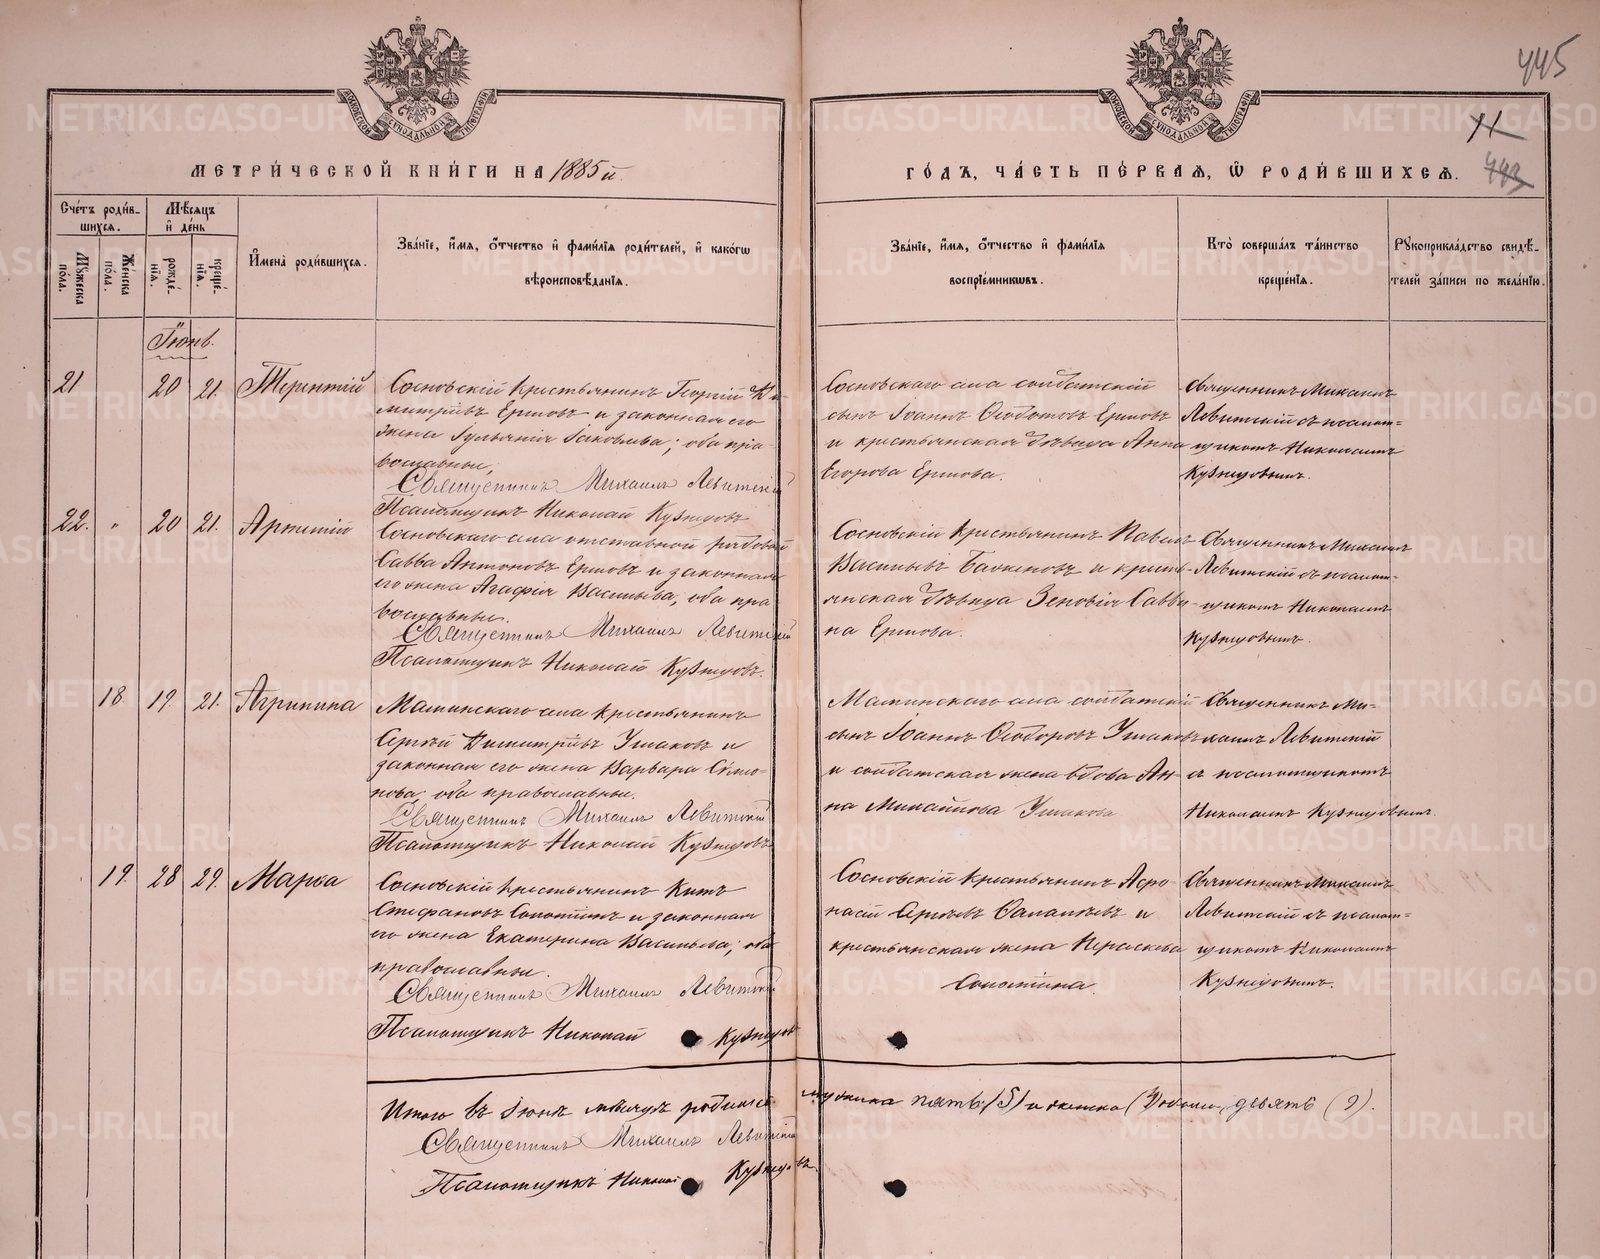 445
11
443
МЕТРИ́ЧЕСКОЙ КНИ́ГИ НА 1885й
ГО́ДЪ, ЧА́СТЬ ПЕ́РВАЯ, Ѿ РОДИ́ВШИХСЯ.
Сче́тъ роди́в-
шихся.
Мѣ́сяцъ
и де́нь
Му́жеска по́ла.
Же́нска по́ла.
рожде́нїя.
креще́нїя.
Имена̀ роди́вшихся.
Зва́нїе, и́мя, о́тчество и фами́лїя роди́телей, и како́гѡ
вѣроисповѣ́данїя.
Зва́нїе, и́мя, о́тчество и фами́лїя
воспрїе́мникѡвъ.
Кто̀ соверша́лъ та́инство
креще́нїя.
Рꙋкоприкла́дство свидѣ́-
телей за́писи по жела́нїю.
Іюнь.
21 20 21. Терентій
Сосновскій крестьянинъ Георгій Ди-
митріевъ Ершовъ и законная его
жена Іаковлева; оба пра-
вославные,
Священникъ Михаилъ Левитскій
Псаломщикъ Николай Кузнецовъ
Сосновскаго села солдатскій
сынъ Іоаннъ Ершовъ
и крестьянская дѣвица Анна
Егорова Ершова.
Священникъ Михаилъ
Левитскій съ псалом=
щикомъ Николаемъ
Кузнецовымъ.
22. " 20 21.
Сосновскаго села отставной рядовой
Савва Антоновъ Ершовъ и законная
его жена Агафія Васильева, оба пра-
вославные.
Священникъ Михаилъ Левитскій
Псаломщикъ Николай Кузнецовъ.
Сосновскій крестьянинъ Павелъ
Васильевъ и кресть-
янская дѣвица Зеновія Савви-
на Ершова.
Священникъ Михаилъ
Левитскій съ псалом-
щикомъ Николаемъ
Кузнецовымъ.
18. 19. 21. Агрипина
села крестьянинъ
Сергѣй Димитріевъ Ушаковъ и
законная его жена Варвара Симо-
нова, оба православные.
Священникъ Михаилъ Левитскій
Псаломщикъ Николай Кузнецовъ
села солдатскій
сынъ Іоаннъ Ѳеодоровъ Ушаковъ
и солдатская жена вдова Ан-
на Михайлова Ушакова
Священникъ Ми-
хаилъ Левитскій
съ псаломщикомъ
Николаемъ Кузнецовымъ.
19. 28 29. Марѳа
Сосновскій крестьянинъ Титъ
Стефановъ и законная
его жена Екатерина Васильева; оба
православные.
Священникъ Михаилъ Левитскій
Псаломщикъ Николай Кузнецовъ
Сосновскій крестьянинъ Аѳа-
насій Сергѣевъ и
крестьянская жена Параскева
Священникъ Михаилъ
Левитскій съ псалом=
щикомъ Николаемъ
Кузнецовымъ.
Итого въ Іюнѣ мѣсяцѣ родилось мужеска пять (5) и женска девять (9).
Священникъ Михаилъ Левитскій
Псаломщикъ Николай Кузнецовъ
METRIKI.GASO-URAL.RU